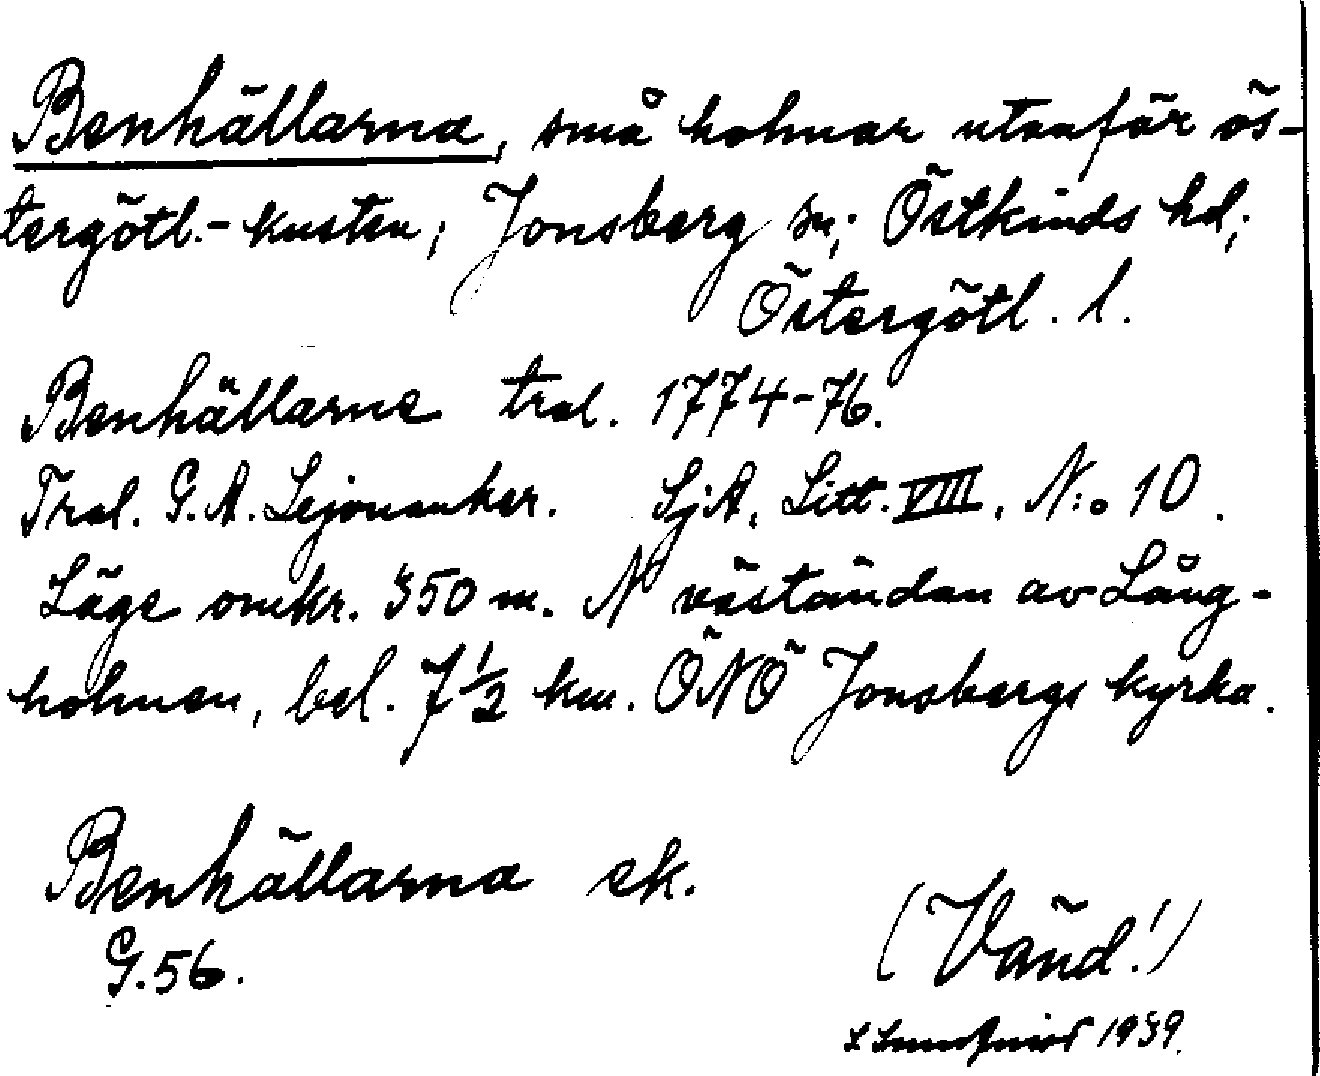 Benhällarna, små holmar utanför ös-
tergötl.-kusten; Jonsberg sn; Östkinds hd;
Östergötl. l.
Benhällarne tral. 1774-76.
Tral. G.A. Lejonanker. SjA, Litt. VIII, N:o 10.
Läge omkr. 350 m. N väständan av Lång-
holmen, bel. 7 1/2 km. ÖNÖ Jonsbergs kyrka.
Benhällarna ek.
G.56.
(Vänd!)
1939.